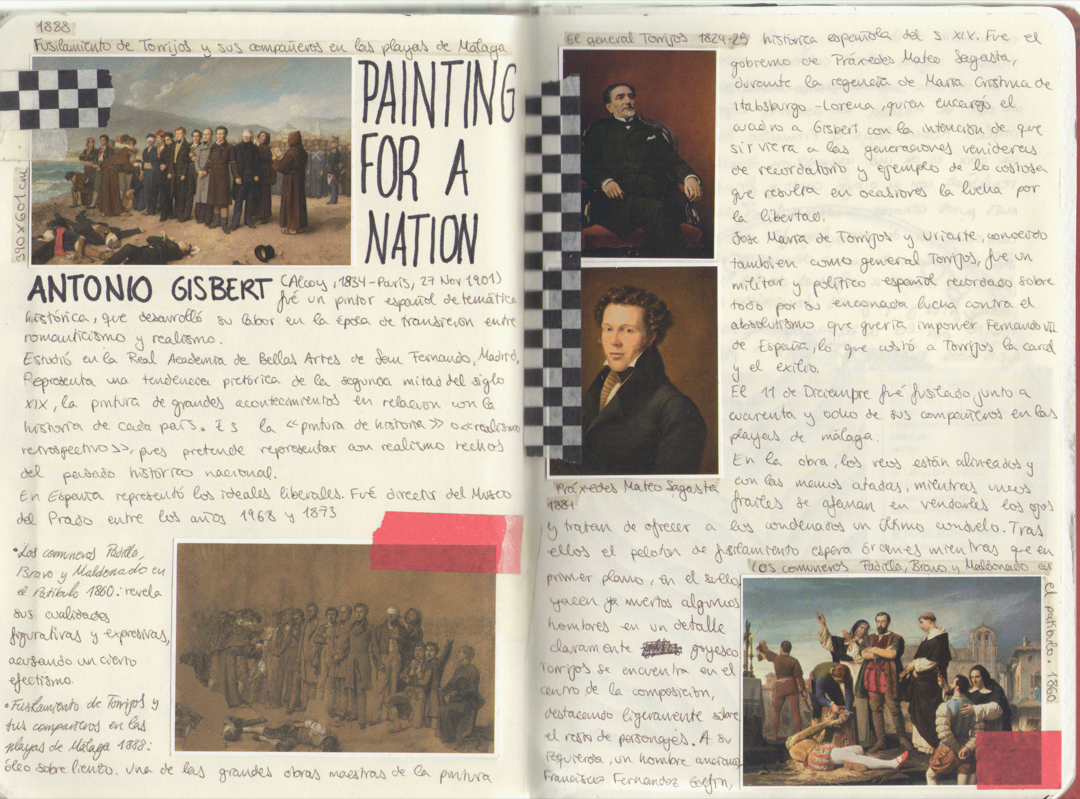 1888
Fusilamiento de Torrijos y sus compañeros en las playas de Málaga
390 x 601 cm
PAINTING
FOR A
NATION
ANTONIO GISBERT (Alcoy, 1834-París, 27 Nov 1901)
fué un pintor español de temática
histórica, que desarrolló su labor en la época de transición entre
romanticismo y realismo.
Estudió en la Real Academia de Bellas Artes de San Fernando, Madrid.
Representa una tendencia pictórica de la segunda mitad del siglo
XIX, la pintura de grandes acontecimientos en relación con la
historia de cada país. Es la <<pintura de historia>> o <<realismo
retrospectivo>>, pues pretende representar con realismo hechos
del pasado histórico nacional.
En España representó los ideales liberales. Fué director del Museo
del Prado entre los años 1968 y 1873
• Los comuneros Padilla,
Bravo y Maldonado en
el Patíbulo 1860: revela
sus cualidades
figurativas y expresivas,
acusando un cierto
efectismo.
• Fusilamiento de Torrijos y
sus compañeros en las
playas de Málaga 1888:
óleo sobre lienzo. Una de las grandes obras maestras de la pintura
El general Torrijos 1824-25
histórica española del s XIX. Fue el
gobierno de Práxedes Mateo Sagasta,
durante la regencia de María Cristina de
Habsburgo-Lorena, quien encargó el
cuadro a Gisbert con la intención de que
sirviera a las generaciones venideras
de recordatorio y ejemplo de lo costosa
que resulta en ocasiones la lucha por
la libertad.
Jose María de Torrijos y Uriarte, conocido
también como general Torrijos, fue un
militar y político español recordado sobre
todo por su enconada lucha contra el
absolutismo que quería imponer Fernando VII
de España, lo que costó a Torrijos la carcel
y el exilio.
El 11 de Diciembre fué fusilado junto a
cuarenta y ocho de sus compañeros en las
playas de málaga.
En la obra, los reos están alineados y
con las manos atadas, mientras unos
frailes se afanan en vendarles los ojos
Práxedes Mateo Sagasta
1884
y tratan de ofrecer a los condenados un último consuelo. Tras
ellos el pelotón de fusilamiento espera órdenes mientras que en
primer plano, en el suelo,
yacen ya muertos algunos
hombres en un detalle
claramente goyesco
Torrijos se encuentra en el
centro de la composición,
destacando ligeramente sobre
el resto de personajes. A su
izquierda, un hombre anciano,
Francisco Fernandez Golfín,
Los comuneros Padilla, Bravo y Maldonado en
el patíbulo. 1860